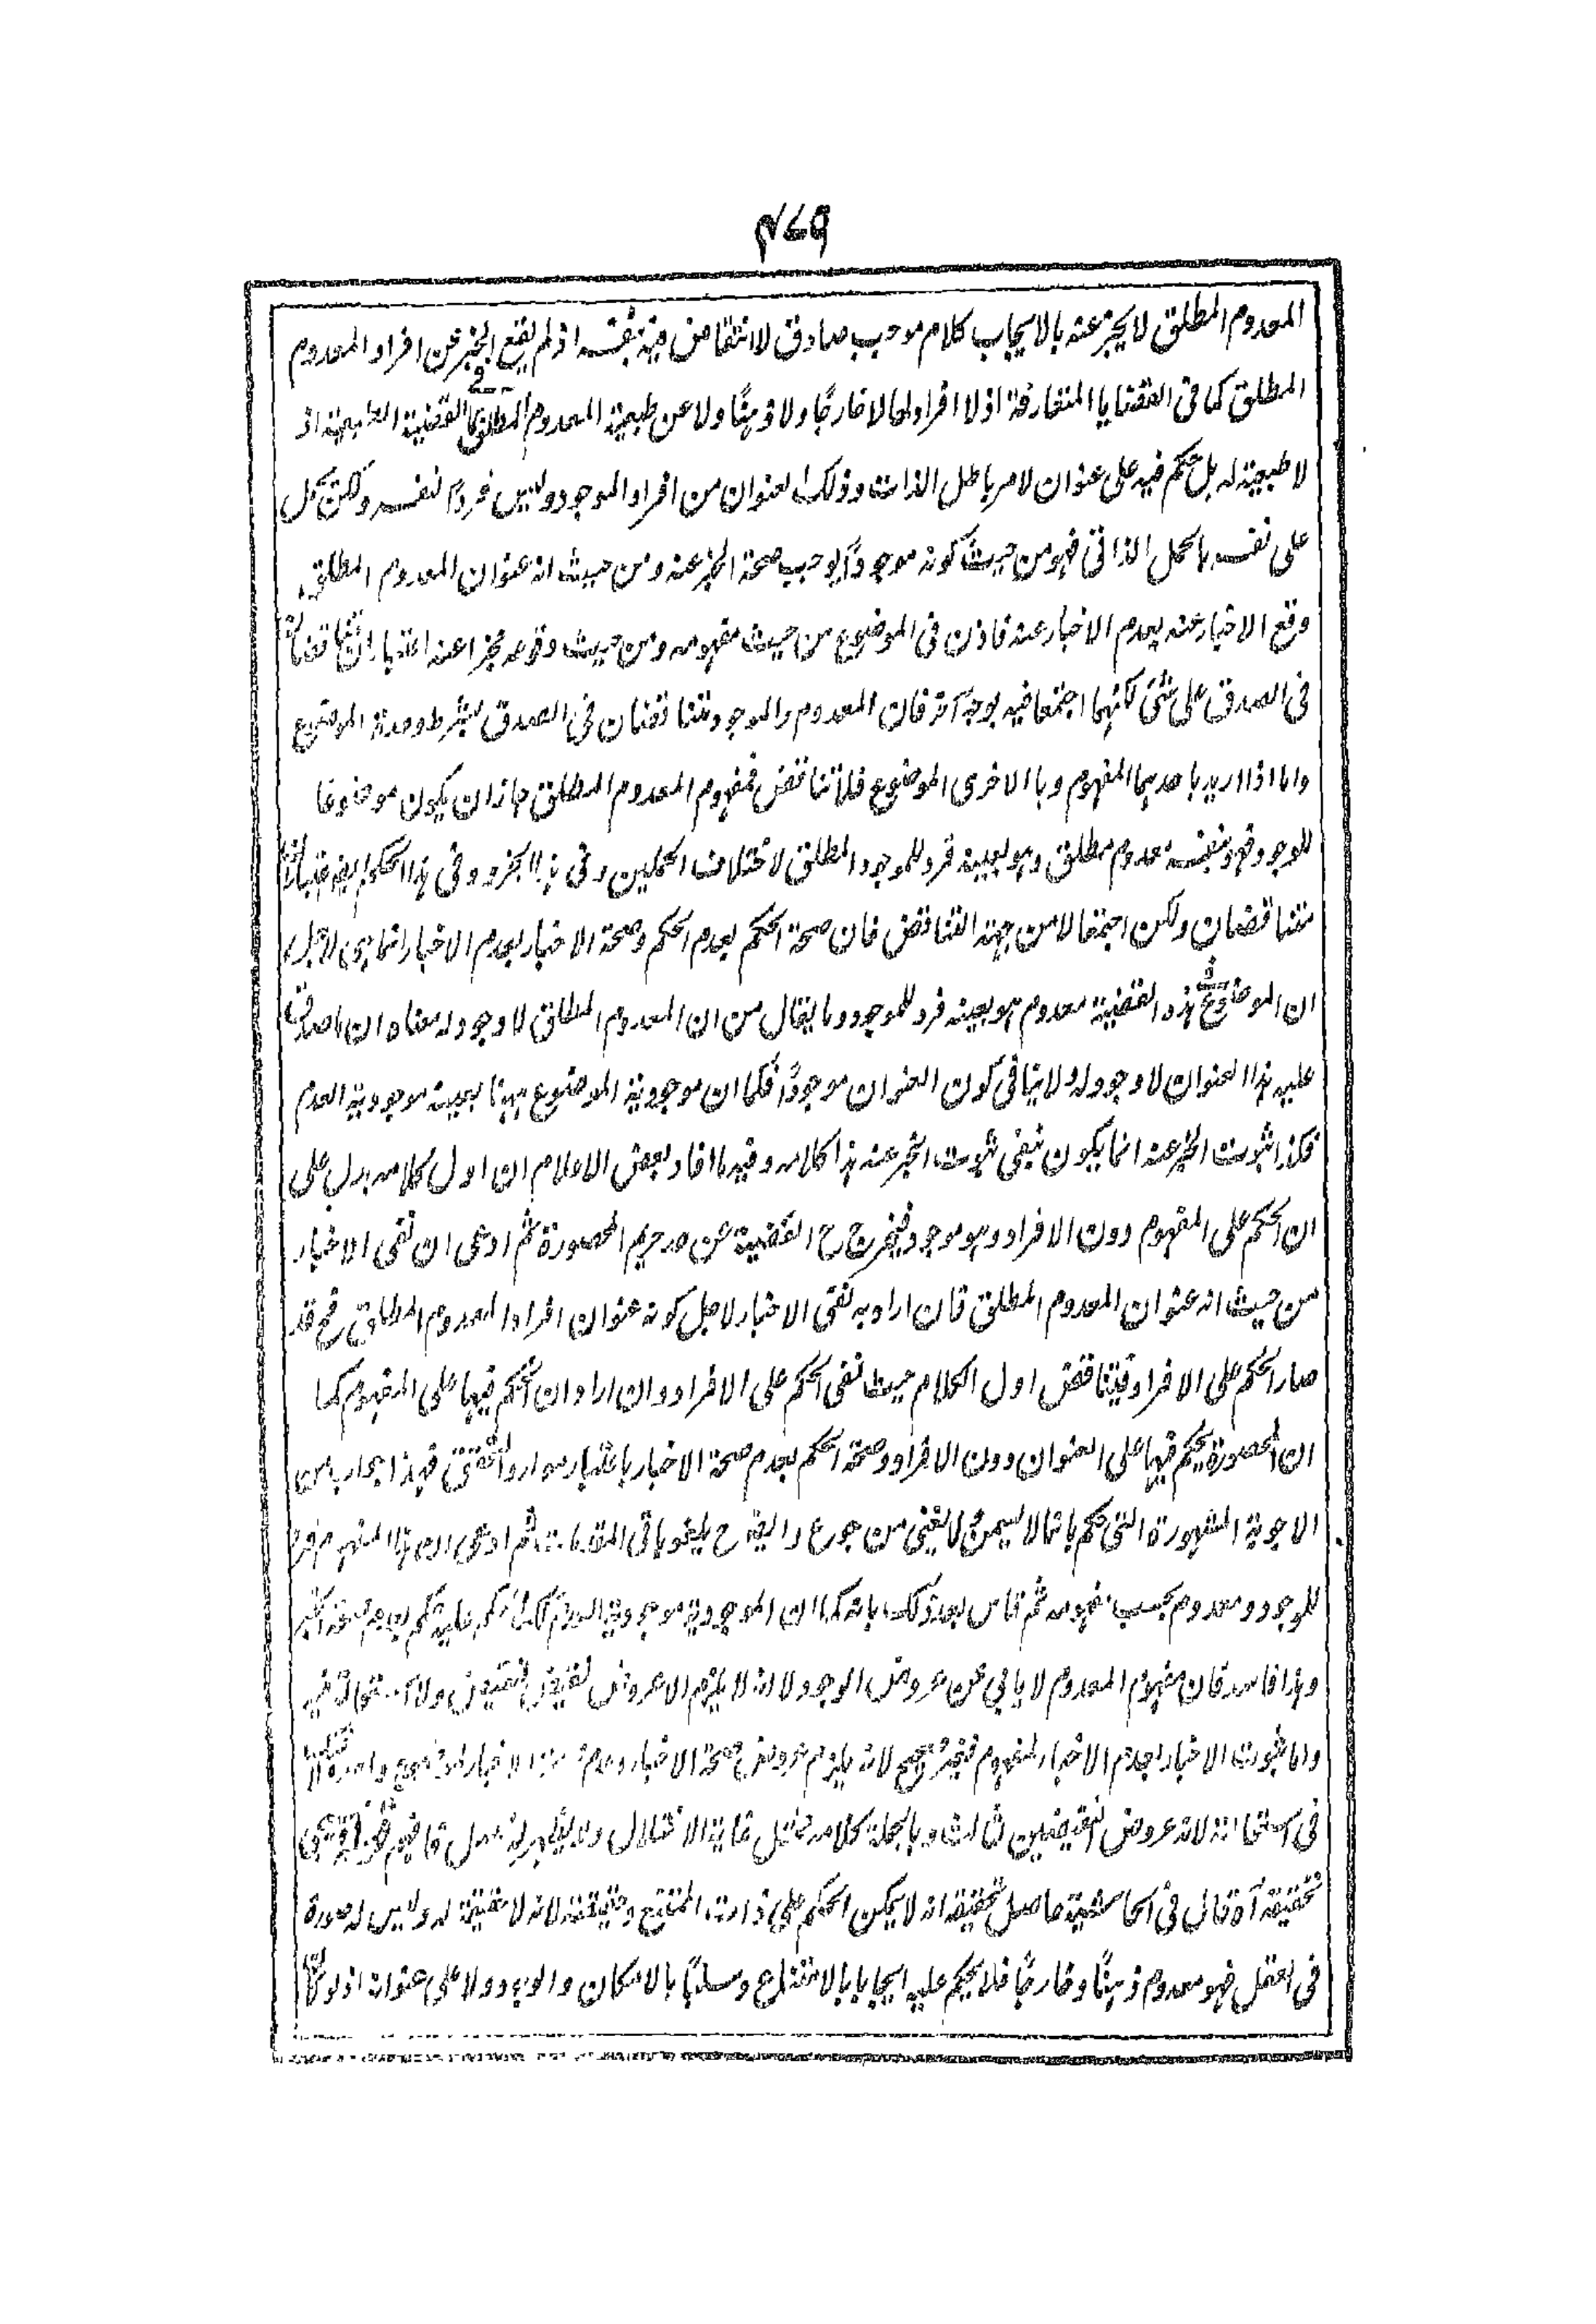 ٤٧٩
المعدوم المطلق لا يخبر عنه بالايجاب كلام موجب صادق لا انتقاض فيه بنفسه اذ لم يقع الخبر عن افراد المعدوم
المطلق كما فى القضايا المتعارفة اذ لا افراد لها لا خارجًا ولا ذهنًا ولا عن طبيعة المعدوم المطلق كما فى القضية الطبيعية اذ
لا طبيعة له بل حكم فيه على عنوان لامر باطل الذات وذلك العنوان من افراد الموجود وليس فردًا لنفسه ولكن يحمل
على نفسه بالحمل الذاتى فهو من حيث كونه موجودًا يوجب صحة الخبر عنه ومن حيث انه عنوان المعدوم المطلق
وقع الاخبار عنه بعدم الاخبار عنه فاذن فى الموضوع من حيث مفهومه ومن حيث وقوعه مخبرا عنه اعتباران متناقضان
فى الصدق على شئ لكنهما اجتمعا فيه بوجه آخر فان المعدوم والموجود متناقضان فى الصدق بشرط وحدة الموضوع
واما اذا اريد باحديهما المفهوم وبالاخرى الموضوع فلا تناقض فمفهوم المعدوم المطلق جاز ان يكون موضوعا
للوجود فهو بنفسه معدوم مطلق وهو بعينه فرد للموجود المطلق لاختلاف الحملين وفى هذا الخبر وفى هذا الحكم ايضا اعتباران
متناقضان ولكن اجتمعا لا من جهة التناقض فان صحة الحكم بعدم الحكم وصحة الاخبار بعدم الاخبار انما هى لاجل
ان الموضوع فى هذه القضية معدوم هو بعينه فرد للموجود وما يقال من ان المعدوم المطلق لا وجود له معناه ان ما صدق
عليه هذا العنوان لا وجود له ولا ينافى كون العنوان موجودًا فكما ان موجودية الموضوع ههنا بعينه موجودية العدم
فكذا ثبوت الخبر عنه انما يكون بنفى ثبوت الخبر عنه هذا كلامه وفيه ما افاد بعض الاعلام ان اول كلامه يدل على
ان الحكم على المفهوم دون الافراد وهو موجود فيخرج ح القضية عن حريم المحصورة ثم ادعى ان نفى الاخبار
من حيث انه عنوان المعدوم المطلق فان اراد به نفى الاخبار لاجل كونه عنوان افراد المعدوم المطلق فح قد
صار الحكم على الافراد فيناقض اول الكلام حيث نفى الحكم على الافراد وان اراد ان الحكم فيها على المفهوم كما
ان المحصورة يحكم فيها على العنوان دون الافراد وصحة الحكم بعدم صحة الاخبار باعتبار موارد التحقق فهذا جواب من
الاجوبة المشهورة التى حكم بانها لا يسمن ولا يغنى من جوع وايضا ح يلغو باقى المقدمات ثم ادعى ان هذا المفهوم فرد
للوجود ومعدوم بحسب مفهومه ثم قاس بعد ذلك بانه كما ان الموجودية موجودية العدم كذلك الحكم عليه حكم بعدم صحة الخبر
وهذا فاسد فان مفهوم المعدوم لا يابى عن عروض الوجود لانه لا يلزم الا عروض نقيض لنقيض ولا استحالة فيه
واما ثبوت الاخبار بعدم الاخبار لمفهوم فغير صحيح لانه يلزم عروض صحة الاخبار وعدم صحة الاخبار لموضوع واحد
فى استحالته لانه عروض النقيضين لثالث وبالجملة كلامه مختل غاية الاختلال ولا يظهر له عمل فافهم
تحقيقه آه قال فى الحاشية حاصل تحقيقه انه لا يمكن الحكم على ذات الممتنع وحقيقته لانه لا حقيقة له وليس له صورة
فى العقل فهو معدوم ذهنًا وخارجًا فلا يحكم عليه ايجابا بالامتناع وسلبًا بالامكان والوجود ولا على عنوانه اذ لو كان